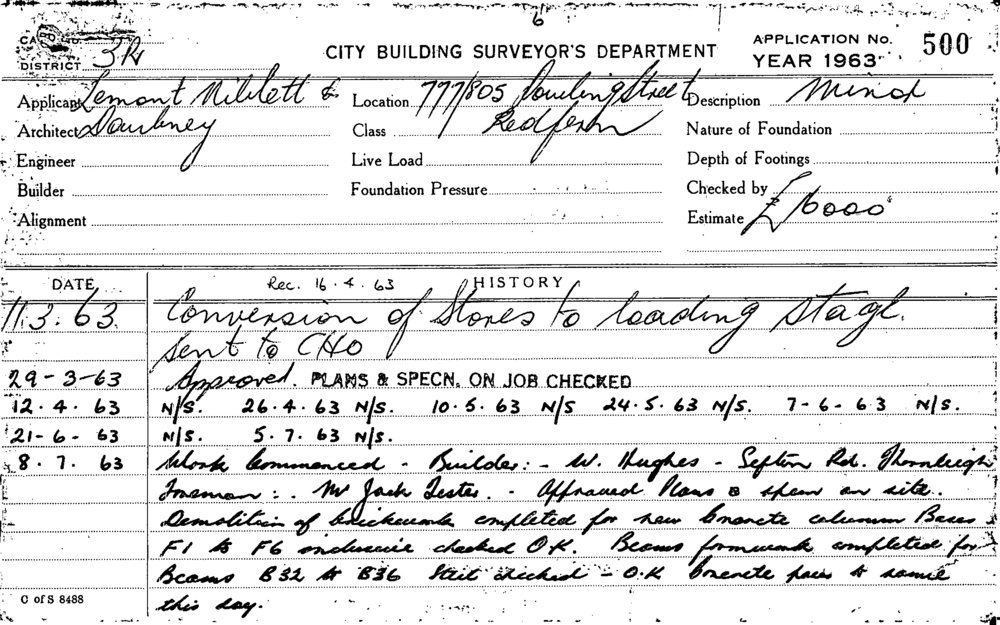 6
CITY BUILDING SURVEYOR'S DEPARTMENT
APPLICATION No. 500
YEAR 1963
DISTRICT 3A
Applicant Lemont Niblett &
Location 777/805 Dowling Street
Description Minor
Architect Daubney
Class Redfern
Nature of Foundation
Engineer
Live Load
Depth of Footings
Builder
Foundation Pressure
Checked by
Alignment
Estimate £6000
DATE Rec. 16.4.63 HISTORY
11.3.63. Conversion of Stores to loading stage.
Sent to CHO
29-3-63 Approved. PLANS & SPECN. ON JOB CHECKED
12.4.63 N/S. 26.4.63 N/S. 10.5.63 N/S 24.5.63 N/S. 7-6-63 N/S.
21-6-63 N/S. 5.7.63 N/S.
8.7.63 Work Commenced - Builder:- W. Hughes - Sefton Rd. Thornleigh
Foreman:. Mr Jack Lester. - Approved Plans & specn on site.
Demolition of brickwork completed for new Concrete column Bases
F1 to F6 inclusive checked O.K. Beams formwork completed for
Beams B32 to B36 Steel checked - O.K Concrete pour to same
this day.
C of S 8488